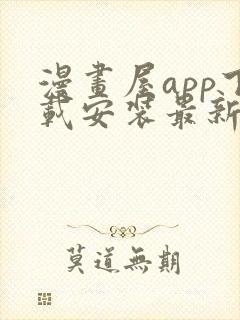 漫畫屋app下
載安裝最新
莫道無期